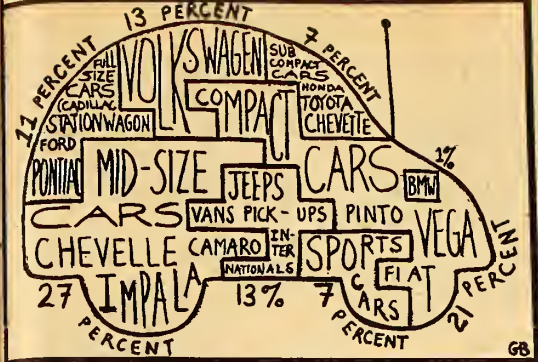 13 PERCENT
11 PERCENT
7 PERCENT
FULL
SIZE
CARS
(CADILLAC
STATIONWAGON
FORD
PONTIAC
VOLKSWAGEN
SUB
COMPACT
CARS
HONDA
TOYOTA
CHEVETTE
COMPACT
CARS
1%
BMW
MID-SIZE
CARS
JEEPS
VANS PICK-UPS
INTER
NATIONALS
PINTO
VEGA
CHEVELLE
CAMARO
IMPALA
SPORTS
CARS
FIAT
27
PERCENT
13%
7
PERCENT
21 PERCENT
GB